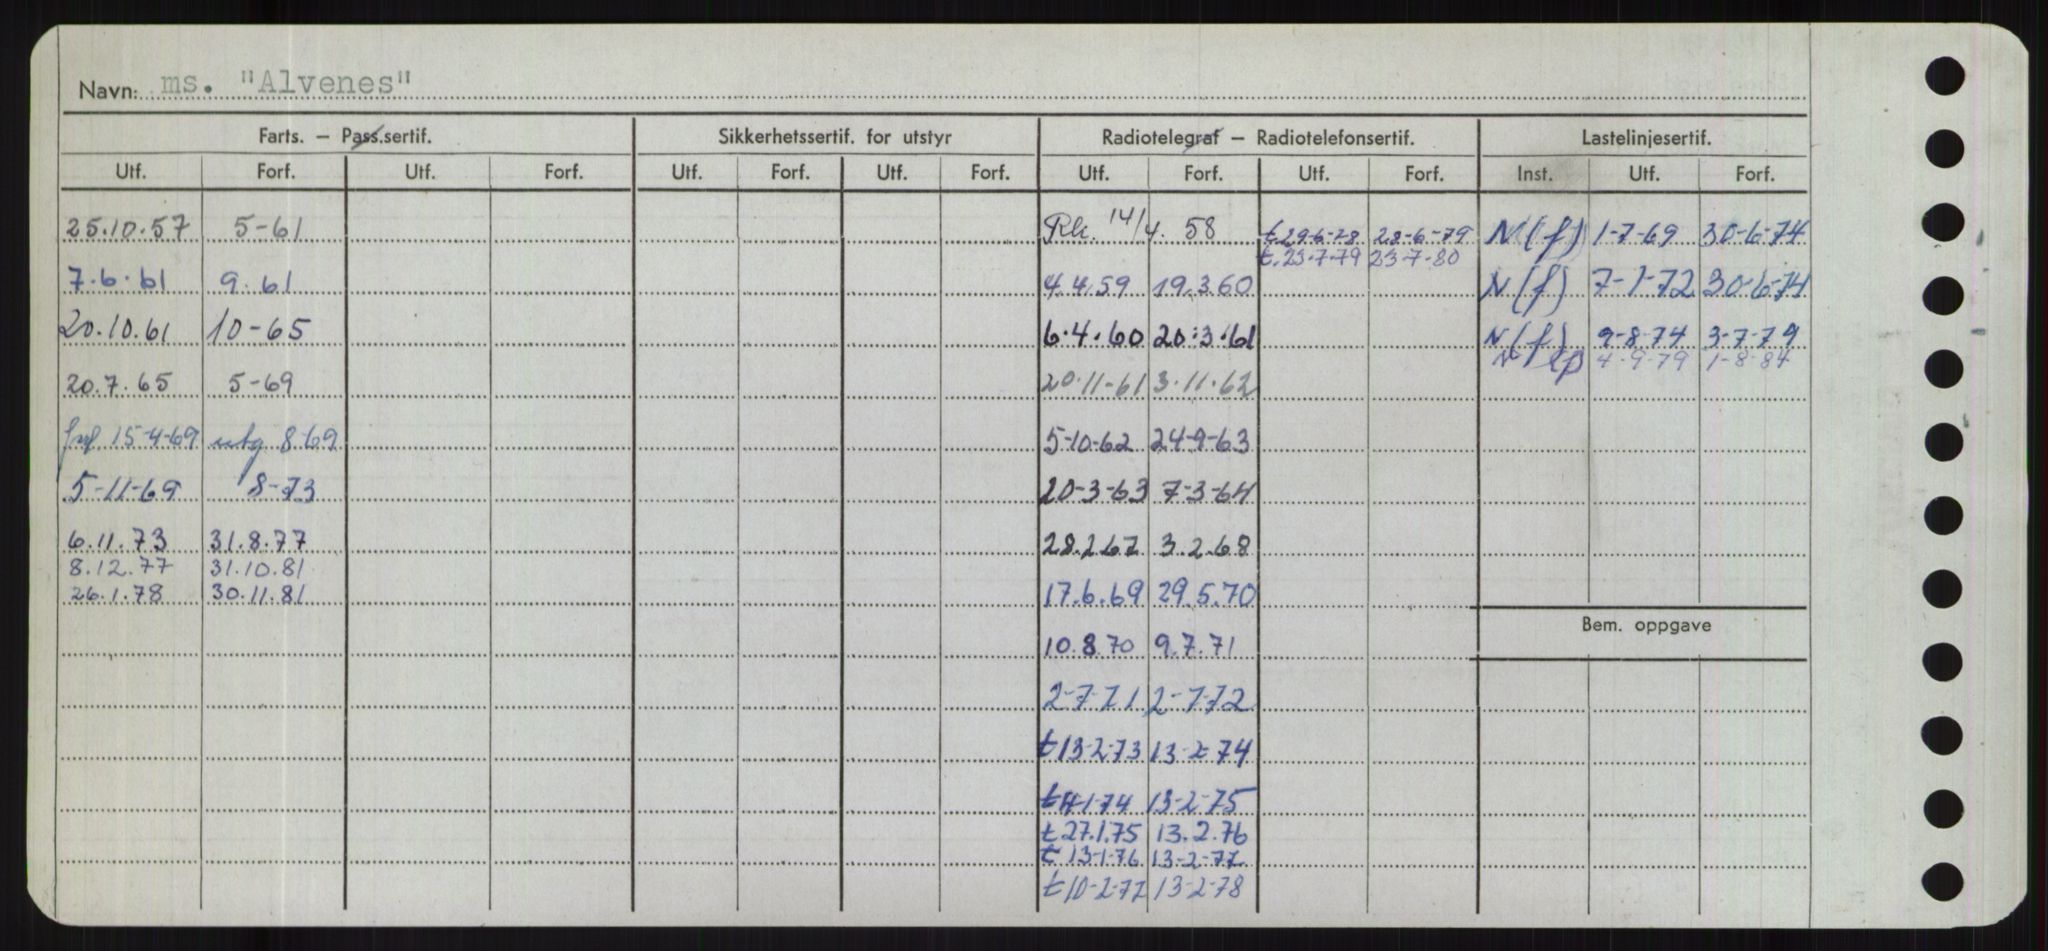 Navn: ms. "Alvenes"
Farts. – Pass.sertif. Sikkerhetssertif. for utstyr Radiotelegraf – Radiotelefonsertif. Lastelinjesertif.
Utf. Forf. Utf. Forf. Utf. Forf. Utf. Forf. Utf. Forf. Utf. Forf. Inst. Utf. Forf.
25.10.57 5-61 14/4. 58 t 29-6-78 28-6-79 N(f) 1-7-69 30-6-74
t. 23-7-79 23-7-80
7.6.61 9.61 4.4.59 19.3.60 N(f) 7-1-72 30-6-74
20.10.61 10-65 6.4.60 20.3.61 N(f) 9-8-74 3-7-79
N 4-9-79 1-8-84
20.7.65 5-69 20.11-61 3.11.62
15-4-69 utg 8-69 5-10-62 24-9-63
5-11-69 8-73 20-3-63 7-3-64
6.11.73 31.8.77 28.2.67 3.2.68
8.12.77 31.10.81
26.1.78 30.11.81 17.6.69 29.5.70
Bem. oppgave
10.8.70 9.7.71
2-7-71 2-7-72
t 13-2-73 13-2-74
t 4-1-74 13-2-75
t 27.1.75 13.2.76
t 13-1-76 13-2-77
t 10-2-77 13-2-78